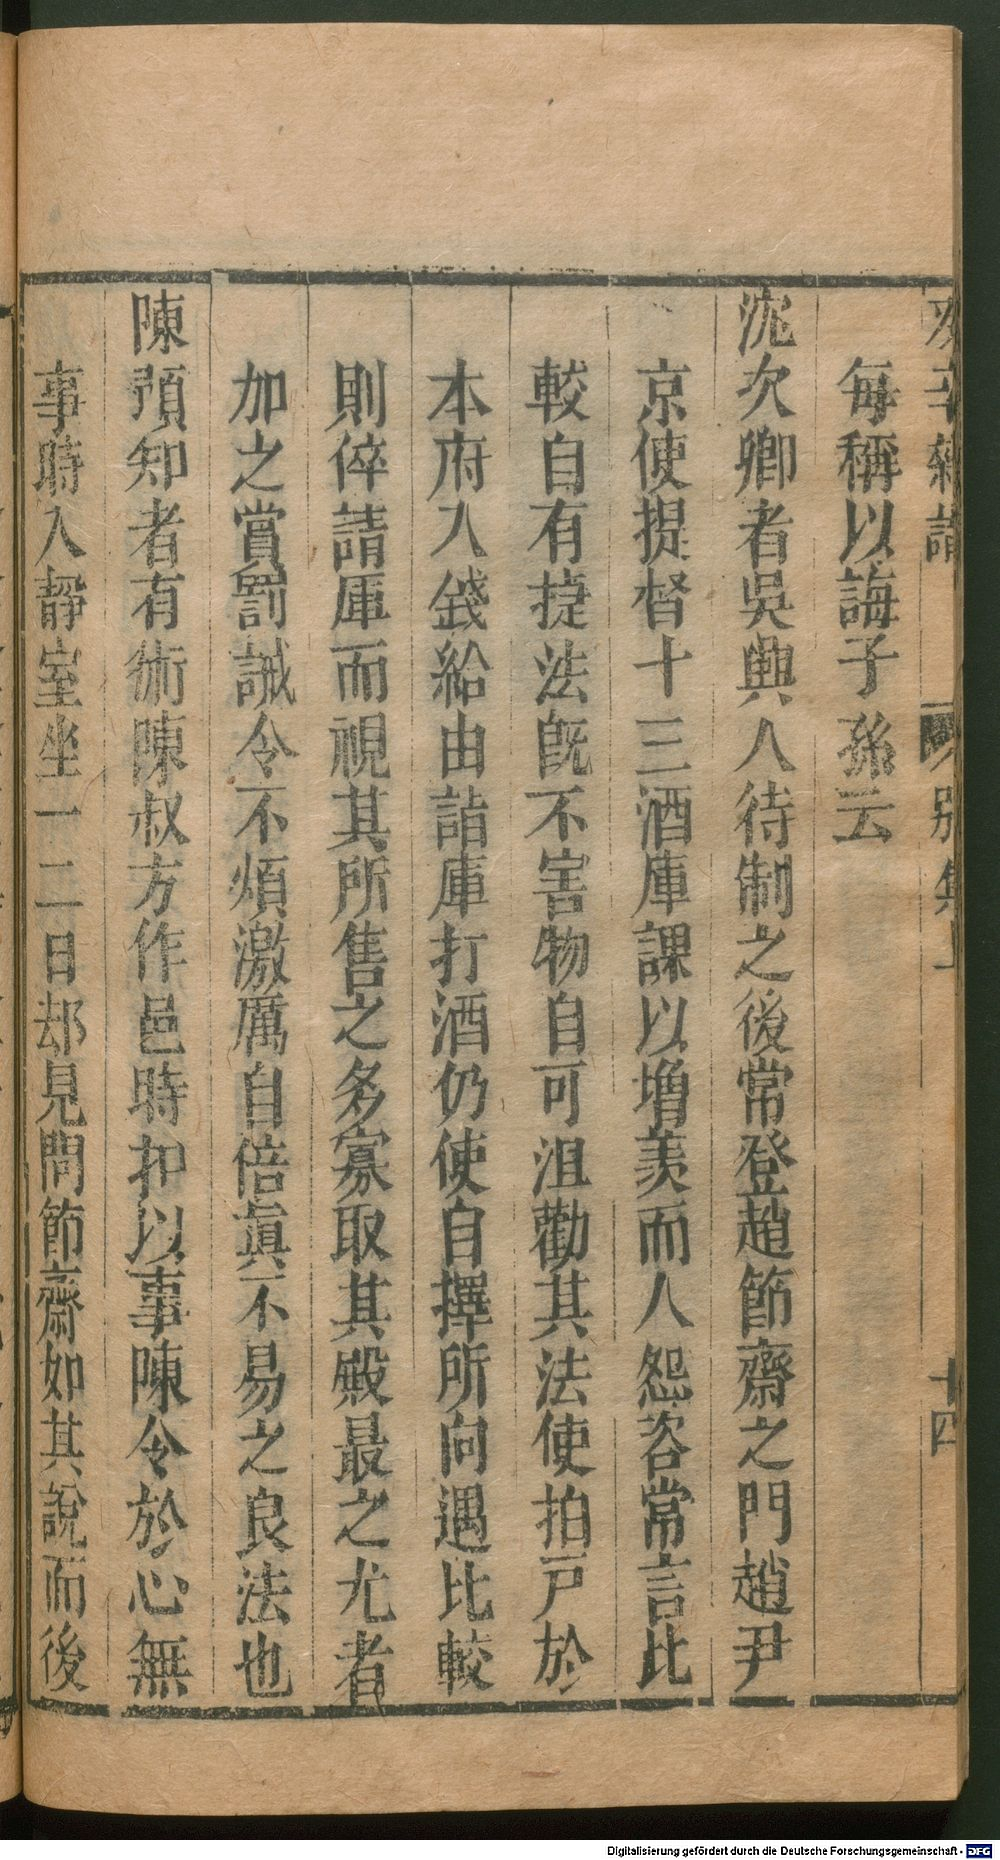 癸辛雜識 別集上 十四
每稱以誨子孫云
沈次卿者吳興人待制之後常登趙節齋之門趙尹
京使提督十三酒庫課以增羨而人怨咨常言比
較自有捷法旣不害物自可沮勸其法使拍戸於
本府入錢給由詣庫打酒仍使自擇所向遇比較
則倅請庫而視其所售之多寡取其殿最之尤者
加之賞罰誡令不煩激厲自倍眞不易之良法也
陳預知者有術陳叔方作邑時扣以事陳令於心無
事時入靜室坐一二日却見問節齋如其說而後
Digitalisierung gefördert durch die Deutsche Forschungsgemeinschaft - DFG